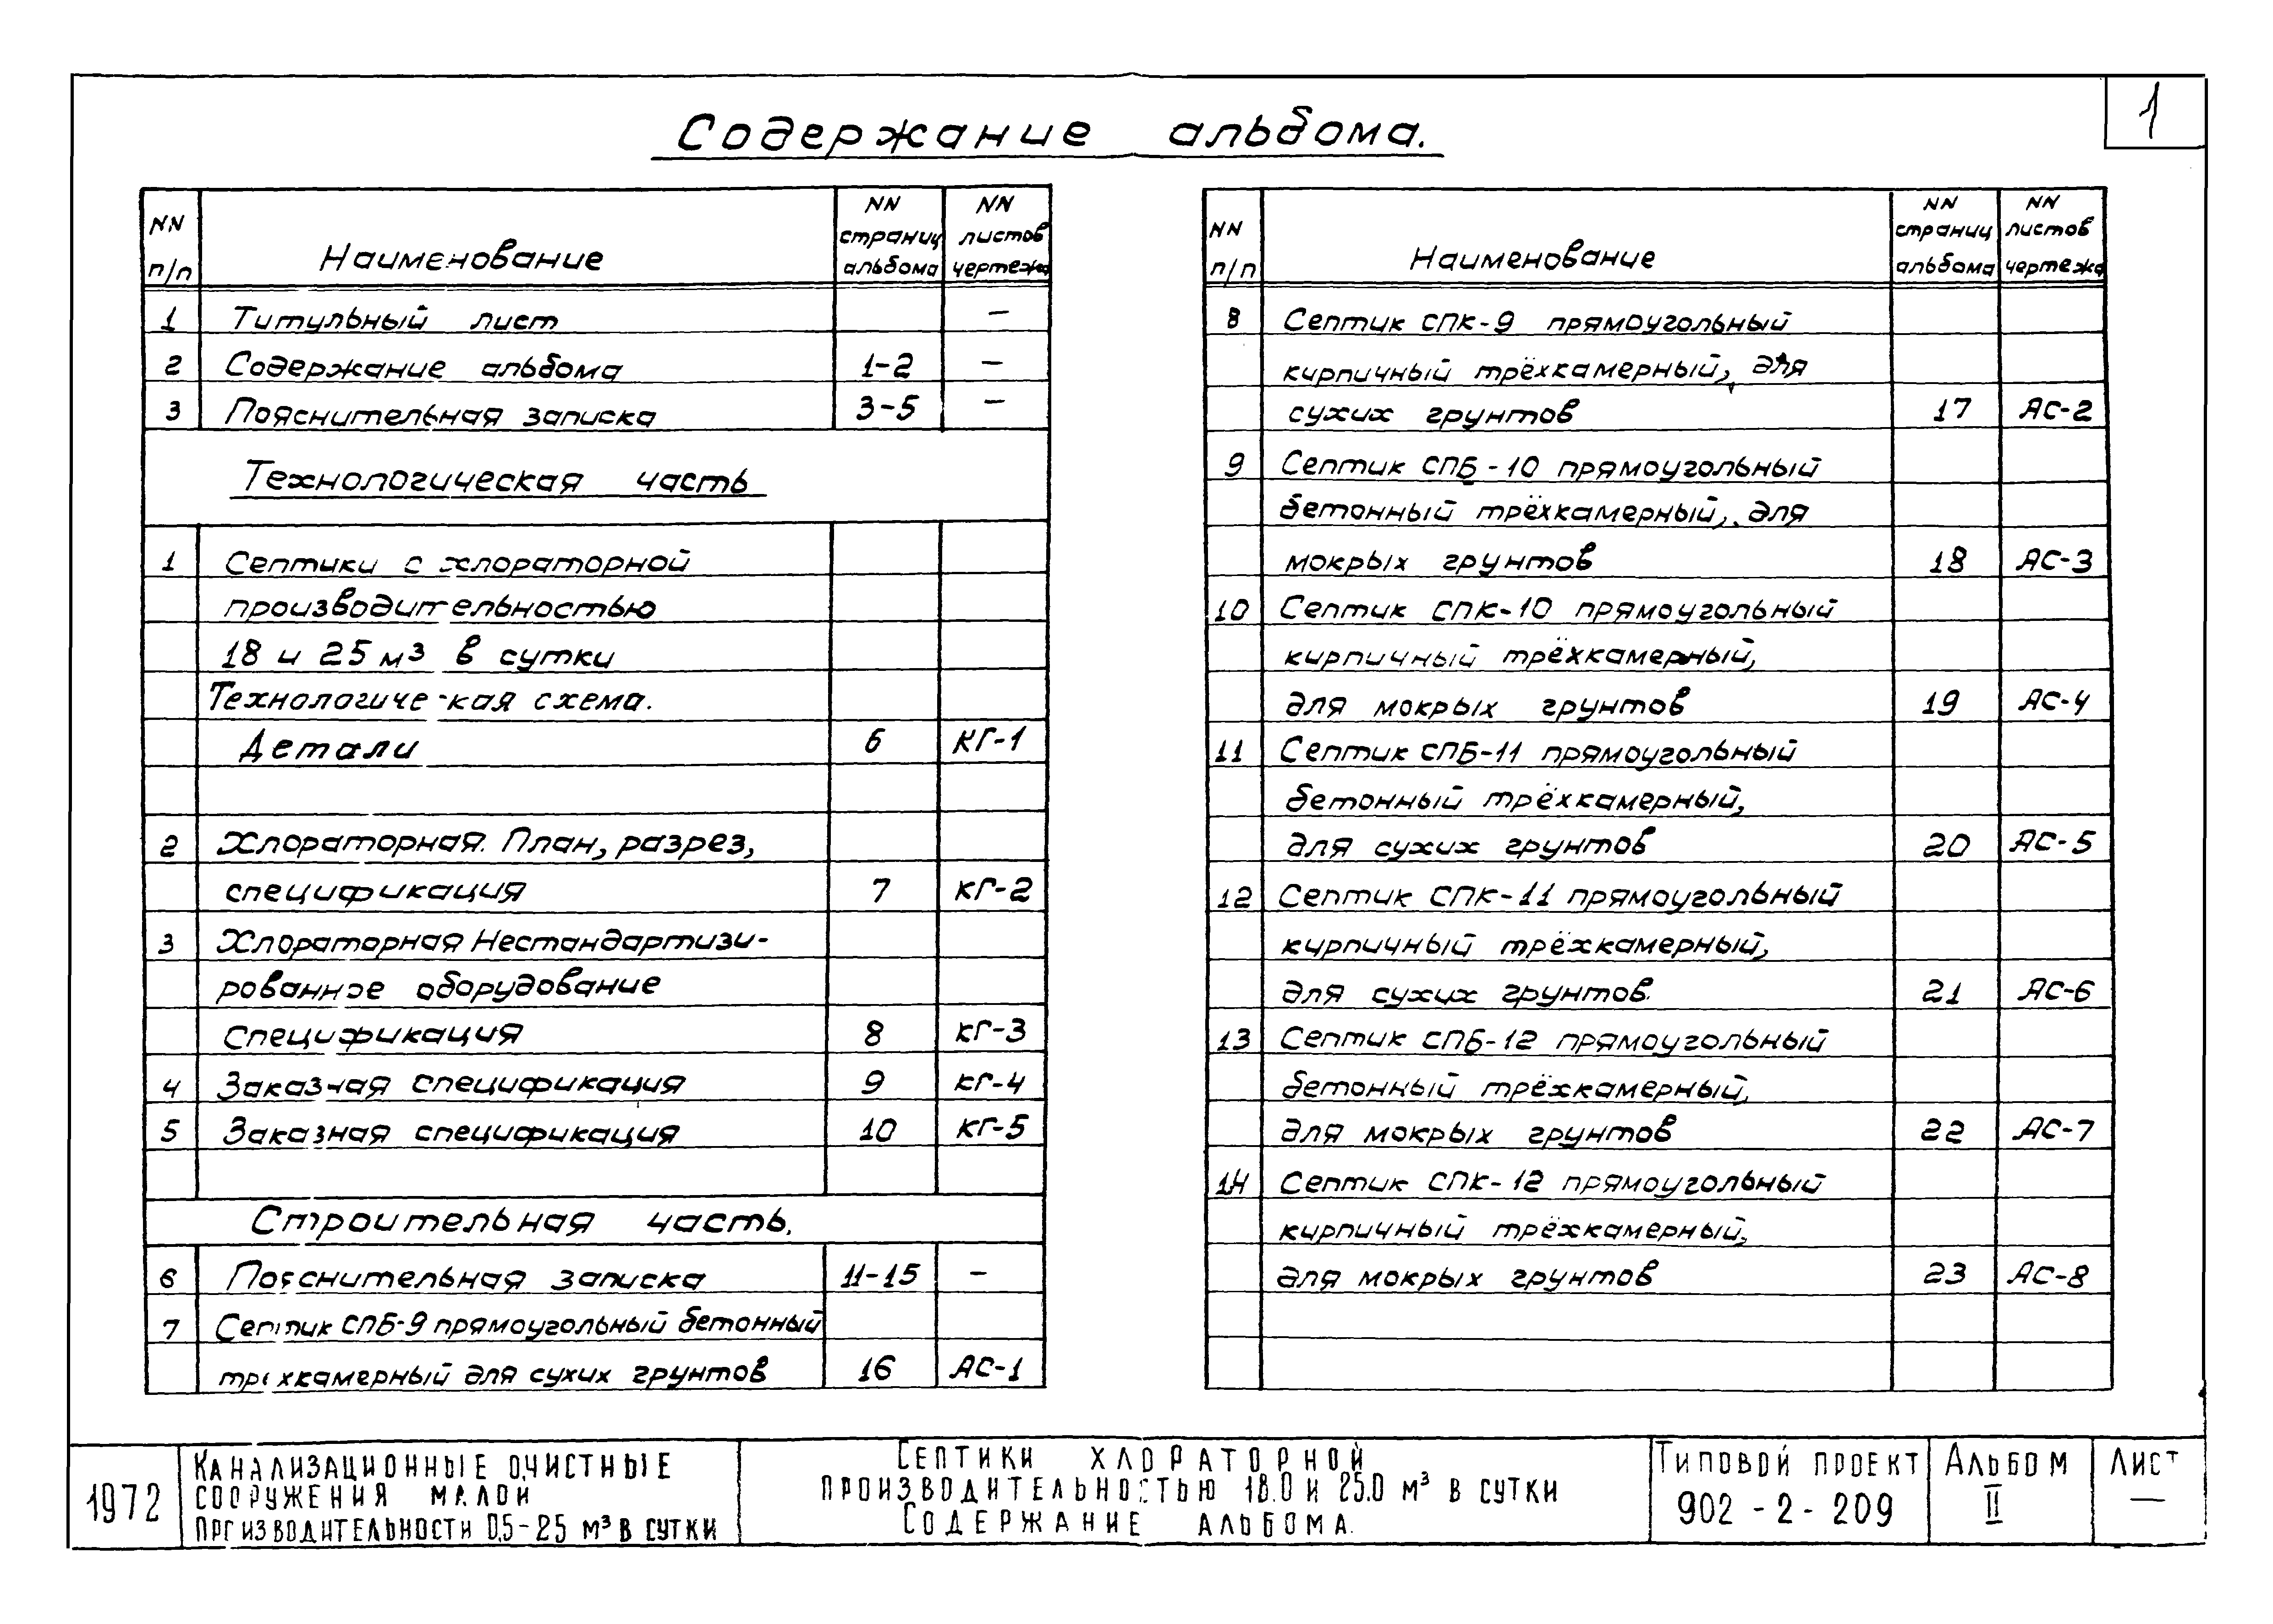 1
Содержание альбома.
NN п/п Наименование NN страниц альбома NN листов чертежа
1 Титульный лист —
2 Содержание альбома 1-2 —
3 Пояснительная записка 3-5 —
Технологическая часть
1 Септики с хлораторной
производительностью
18 и 25 м³ в сутки
Технологиче-кая схема.
Детали 6 КГ-1
2 Хлораторная. План, разрез,
спецификация 7 КГ-2
3 Хлораторная Нестандартизи-
рованное оборудование
Спецификация 8 КГ-3
4 Заказная спецификация 9 КГ-4
5 Заказная спецификация 10 КГ-5
Строительная часть.
6 Пояснительная записка 11-15 —
7 Септик СПБ-9 прямоугольный бетонный
трехкамерный для сухих грунтов 16 АС-1
NN п/п Наименование NN страниц альбома NN листов чертежа
8 Септик СПК-9 прямоугольный
кирпичный трёхкамерный, для
сухих грунтов 17 АС-2
9 Септик СПБ-10 прямоугольный
бетонный трёхкамерный, для
мокрых грунтов 18 АС-3
10 Септик СПК-10 прямоугольный
кирпичный трёхкамерный,
для мокрых грунтов 19 АС-4
11 Септик СПБ-11 прямоугольный
бетонный трёхкамерный,
для сухих грунтов 20 АС-5
12 Септик СПК-11 прямоугольный
кирпичный трёхкамерный,
для сухих грунтов. 21 АС-6
13 Септик СПБ-12 прямоугольный
бетонный трёхкамерный,
для мокрых грунтов 22 АС-7
14 Септик СПК-12 прямоугольный
кирпичный трёхкамерный,
для мокрых грунтов 23 АС-8
1972
Канализационные очистные
сооружения малой
производительности 0,5-25 м³ в сутки
Септики хлораторной
производительностью 18.0 и 25.0 м³ в сутки
Содержание альбома.
Типовой проект
902-2-209
Альбом
II
Лист
—